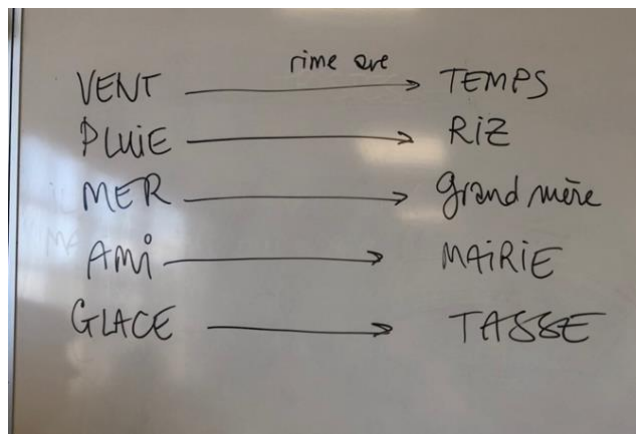 rime ave
VENT → TEMPS
PLUIE → RIZ
MER → grand mère
AMI → MAIRIE
GLACE → TASSE